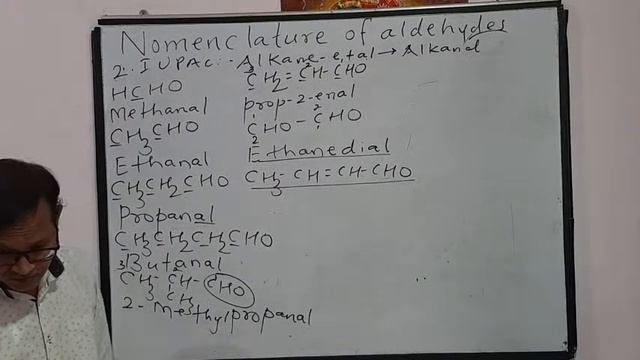 Nomenclature of aldehydes
2. IUPAC:- Alkane - e + al → Alkanal
HCHO
Methanal
CH3CHO
Ethanal
CH3CH2CHO
Propanal
CH3CH2CH2CHO
Butanal
3 2 1
CH3- CH- CHO
CH3
2- Methylpropanal
3 2
CH2=CH-CHO
prop-2-enal
2
CHO-CHO
2
Ethanedial
CH3- CH=CH-CHO